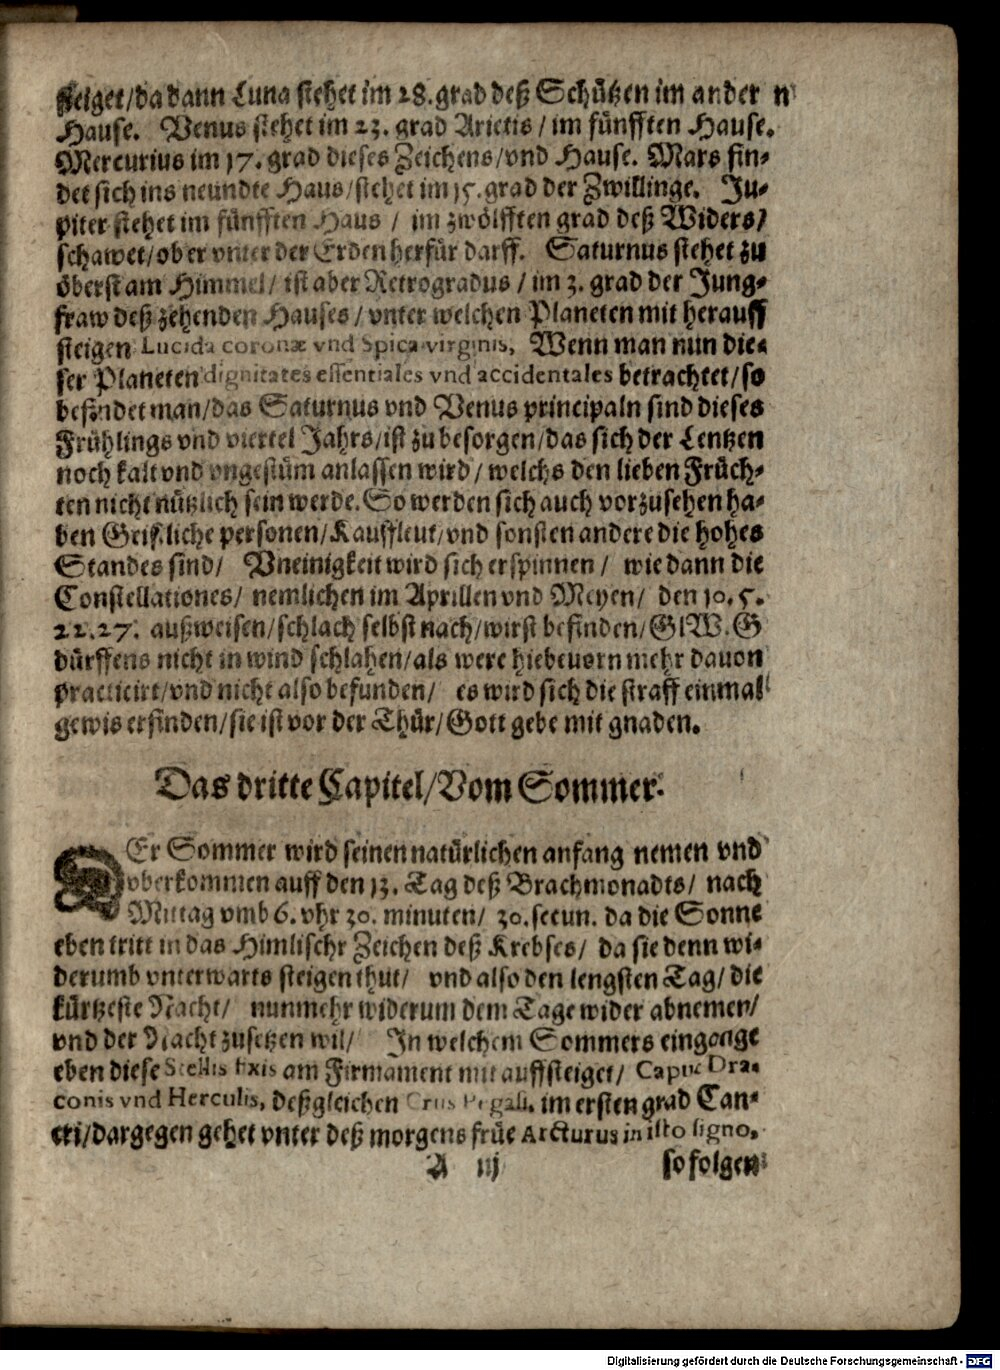 steiget/da dann Luna stehet im 28. grad deß Schützen im ander n
Hause. Venus stehet im 23. grad Arietis / im fünfften Hause.
Mercurius im 17. grad dieses Zeichens/vnd Hause. Mars fin-
det sich ins neundte Haus/stehet im 15. grad der Zwillinge. Ju-
piter stehet im fünfften Haus / im zwölfften grad deß Widers/
schawet/ob er vnter der Erden herfür darff. Saturnus stehet zu
öberst am Himmel/ ist aber Retrogradus / im 3. grad der Jung-
fraw deß zehenden Hauses/ vnter welchen Planeten mit herauff
steigen Lucida coronæ vnd Spica virginis, Wenn man nun die-
ser Planeten dignitates essentiales vnd accidentales betrachtet/so
befindet man/das Saturnus vnd Venus principaln sind dieses
Frühlings vnd viertel Jahrs/ist zu besorgen/das sich der Lentzen
noch kalt vnd vngestüm anlassen wird/ welchs den lieben Früch-
ten nicht nützlich sein werde. So werden sich auch vorzusehen ha-
ben Geistliche personen/Kauffleut/vnd sonsten andere die hohes
Standes sind/ Vneinigkeit wird sich erspinnen / wie dann die
Constellationes/ nemlichen im Aprillen vnd Meyen/ den 10. 5.
22.27. außweisen/schlach selbst nach/wirst befinden/GIW. G
dürffens nicht in wind schlahen/als were hiebeuorn mehr dauon
practicirt/vnd nicht also befunden/ es wird sich die straff einmal
gewis erfinden/sie ist vor der Thür/Gott gebe mit gnaden.
Das dritte Capitel/Vom Sommer.
DEr Sommer wird seinen natürlichen anfang nemen vnd
vberkommen auff den 13. Tag deß Brachmonadts/ nach
Mittag vmb 6. vhr 30. minuten/ 30. secun. da die Sonne
eben tritt in das Himlischr Zeichen deß Krebses/ da sie denn wi-
derumb vnterwarts steigen thut/ vnd also den lengsten Tag/ die
kürtzeste Nacht/ nunmehr widerum dem Tage wider abnemen/
vnd der Nacht zusetzen wil/ In welchem Sommers eingange
eben diese Stellis fixis am Firmament mit auffsteiget/ Caput Dra-
conis vnd Herculis, deßgleichen Crus Pegasi, im ersten grad Can-
cri/dargegen gehet vnter deß morgens früe Arcturus in isto signo,
A iij so folgen
Digitalisierung gefördert durch die Deutsche Forschungsgemeinschaft - DFG